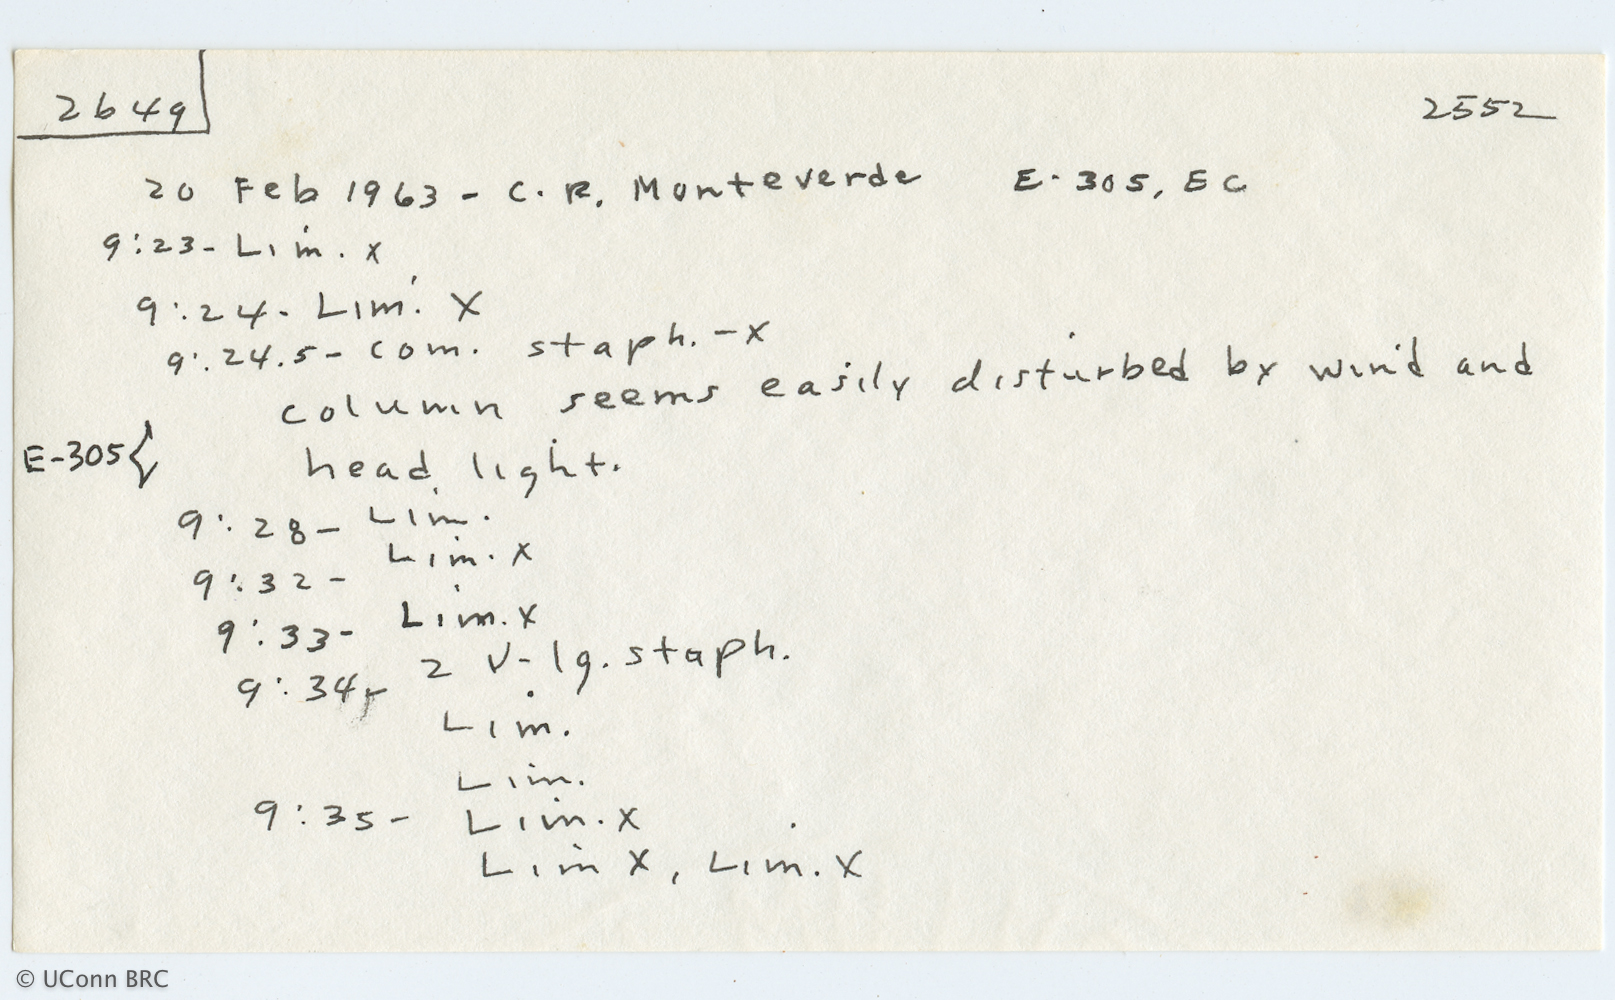 2649
2552
20 Feb 1963 - C.R. Monteverde E-305, EC
9:23- Lim. x
9:24- Lim. X
9:24.5- com. staph. -x
column seems easily disturbed by wind and
E-305{
head light.
9:28- Lim.
9:32- Lim. x
9:33- Lim. x
9:34- 2 V-lg. staph.
Lim.
Lim.
9:35- Lim. x
Lim X, Lim. X
© UConn BRC